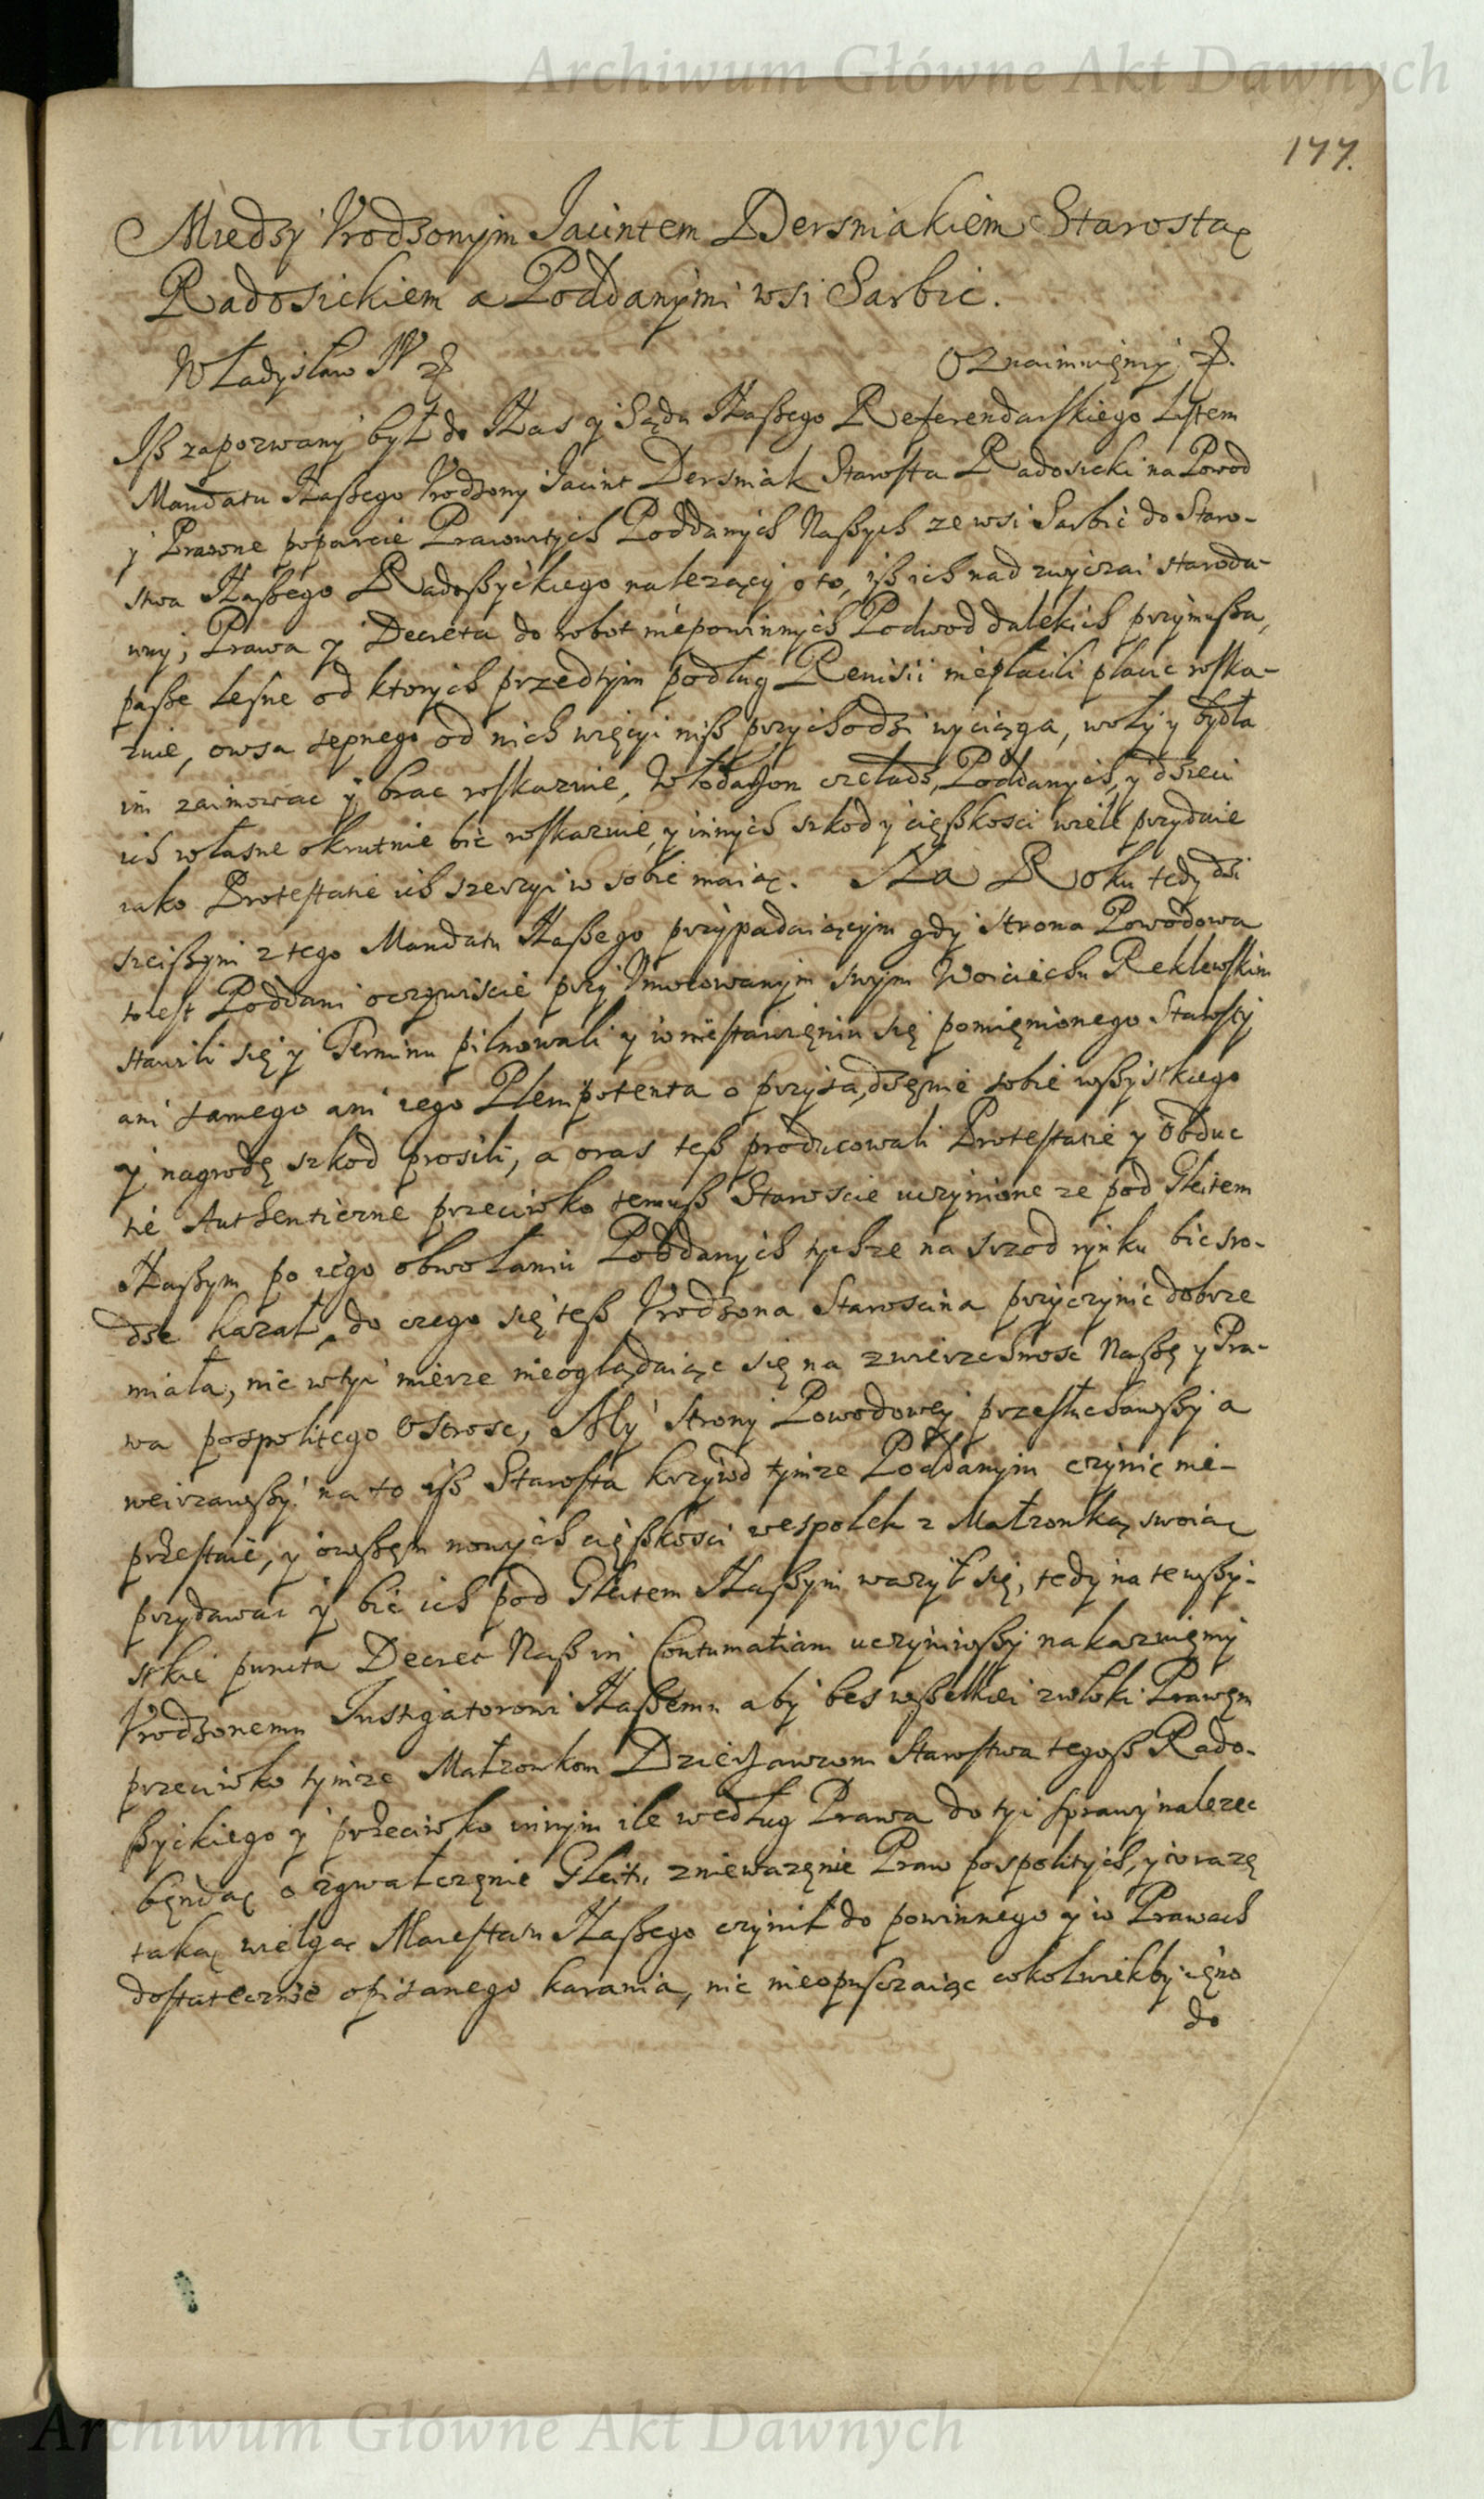 Archiwum Główne Akt Dawnych
177.
Między Vrodzonym Jacintem Dersniakiem Starostą
Radosickiem a Poddanymi wsi Sarbic.
Władysław IV
Oznaimuięmy
Iß zapozwany był do Naś y Sądu Naßego Referendarskiego Listem
Mandatu Naßego Vrodzony Jacint Dersniak Starosta Radosicki na Powod
y Prawne poparcie Pracowitych Poddanych Naßych ze wsi Sarbic do Staro-
stwa Naßego Radoßyckiego nalezący o to, iß ich nad zwyczai staroda-
wny, Prawa y Decreta do robot niepowinnych Podwod dalekich przymußa,
paße leśne od ktorych przedtym podług Rewisii niepłacili płacic roska-
zuie, owsa sepnego od nich więcyi niß przychodzi wyciąga, woły y bydła
im zaimowac y brac roskazuie, czeladz, Poddanych, y dzieci
ich własne okrutnie bić roskazuie, y innych szkod y cięßkosci wiele przydaie
iako Protestatie ich szerzyi w sobie maią. Na Roku tedy dzi
sieißym z tego Mandatu Naßego przypadaiącym gdy strona Powodowa
to iest Poddani oczywiscie przy Vmocowanym swym Woiciechu Reklewskim
stawili się y Terminu pilnowali y w niestawięniu się pomięnionego Starosty
ani samego ani iego Plenipotenta o przysądzęnie sobie wßyskiego
y nagrodę szkod prosili, a oras teß producowali Protestatie y Obduc
tie Authenticzne przeciwko temuß Staroscie uczynione ze pod Gleitem
Naßym po iego obwołaniu Poddanych tychze na srzod rynku bić sro-
dze kazał, do czego się teß Vrodzona Starościna przyczynić dobrze
miała, nic w tyi mierze nieoglądaiąc się na zwierzchnosc Naßę y Pra-
wa pospolitego Ostrosc, My Strony Powodowey przesłuchawßy a
weirzawßy na to iß Starosta krzywd tymze Poddanym czynić nie-
przestaie, y owßęm nowych cięßkosci wespołek z Małzonką swoią
przydawać y bić ich pod Gleitem Naßym wazył się, tedy na te wßy-
stkie puncta Decret Naß in Contumatiam uczyniwßy nakazuięmy
Vrodzonemu Instigatorowi Naßemu aby bes wßelkiei zwłoki Prawęm
przeciwko tymze Małzonkom Dzierzawcom Starostwa tegoß Rado-
ßyckiego y przeciwko innym ile według Prawa do tyi sprawy nalezec
będą o zgwałczęnie Gleitu zniewazęnie Praw pospolitych, y w razę
taką wielgą Maiestatu Naßego czynił do powinnego y w Prawach
dostatecznie opisanego karania, nic nieopusczaiąc cokolwiekby
do
Archiwum Główne Akt Dawnych